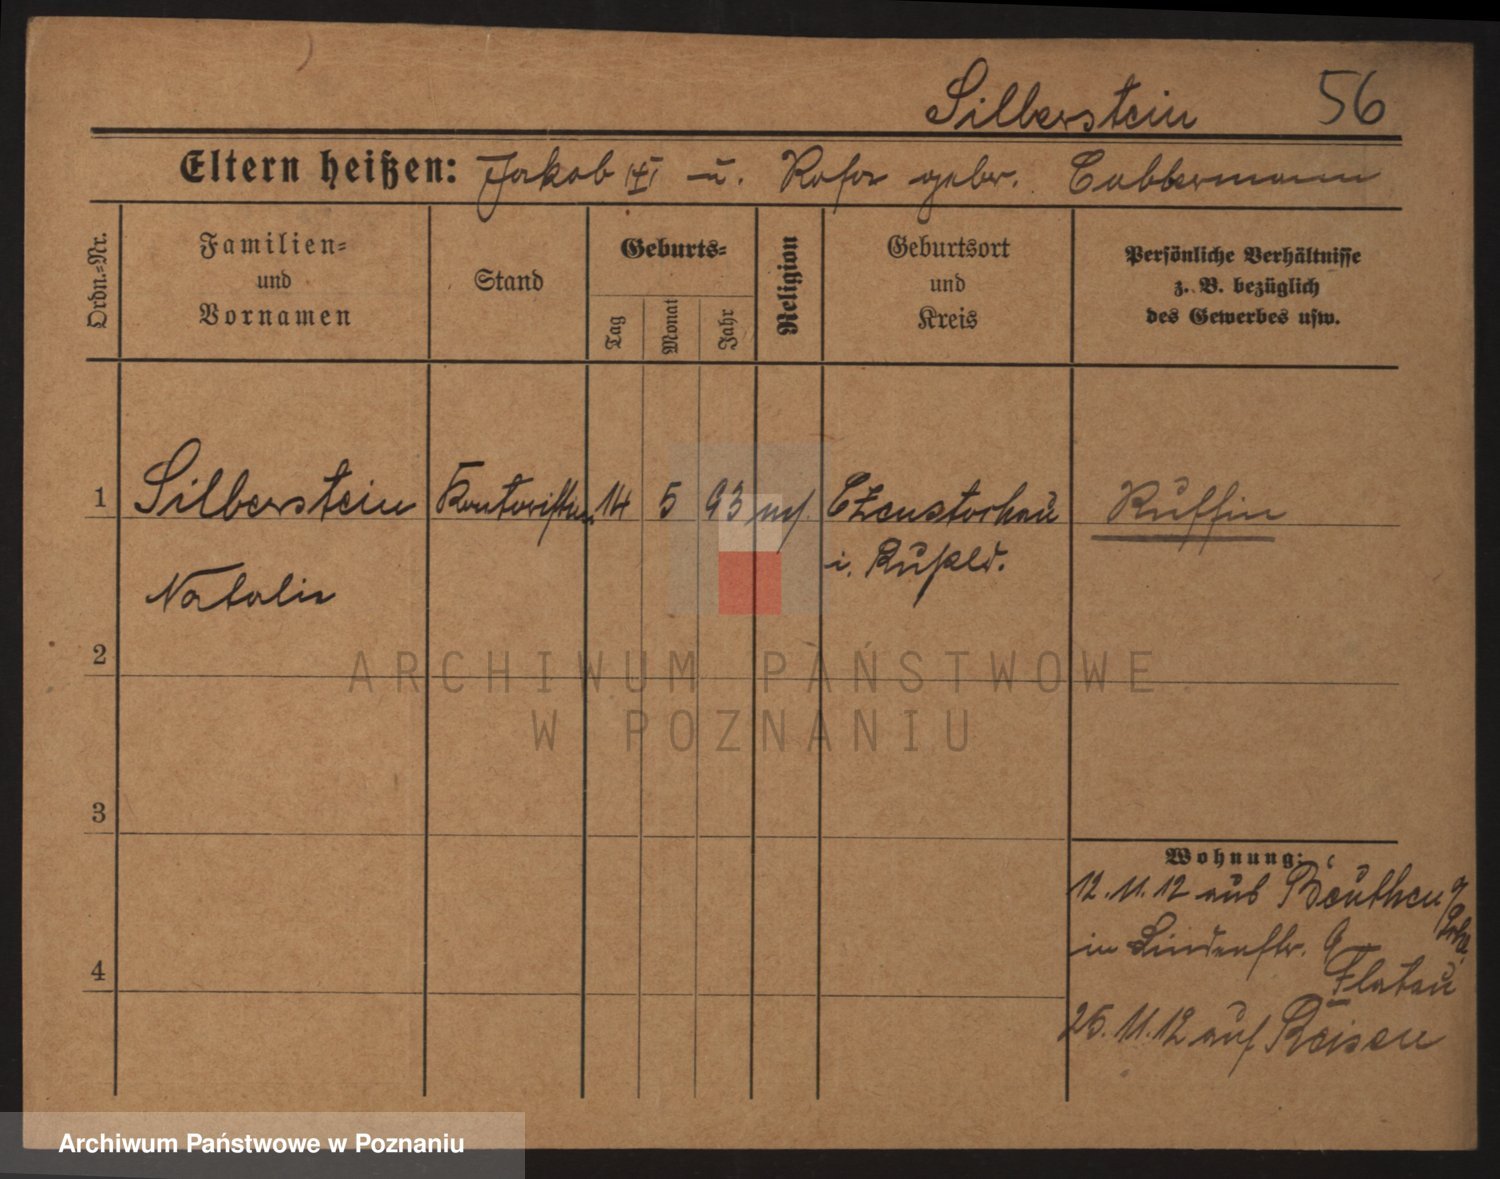 Silberstein 56
Eltern heißen: Jakob (†) u. Rosa gebr.
Ordn.=Nr.
Familien=
und
Vornamen
Stand
Geburts=
Tag
Monat
Jahr
Religion
Geburtsort
und
Kreis
Persönliche Verhältnisse
z. B. bezüglich
des Gewerbes usw.
1 Silberstein Kontoristin 14 5 93 mos. Czenstochau Russin
Natalie i. Rußld.
2
3
4
Wohnung:
12.11.12 aus Beuthen
in Lindenstr. 9
Flatau
25.11.12 auf Reisen
ARCHIWUM PAŃSTWOWE
W POZNANIU
Archiwum Państwowe w Poznaniu